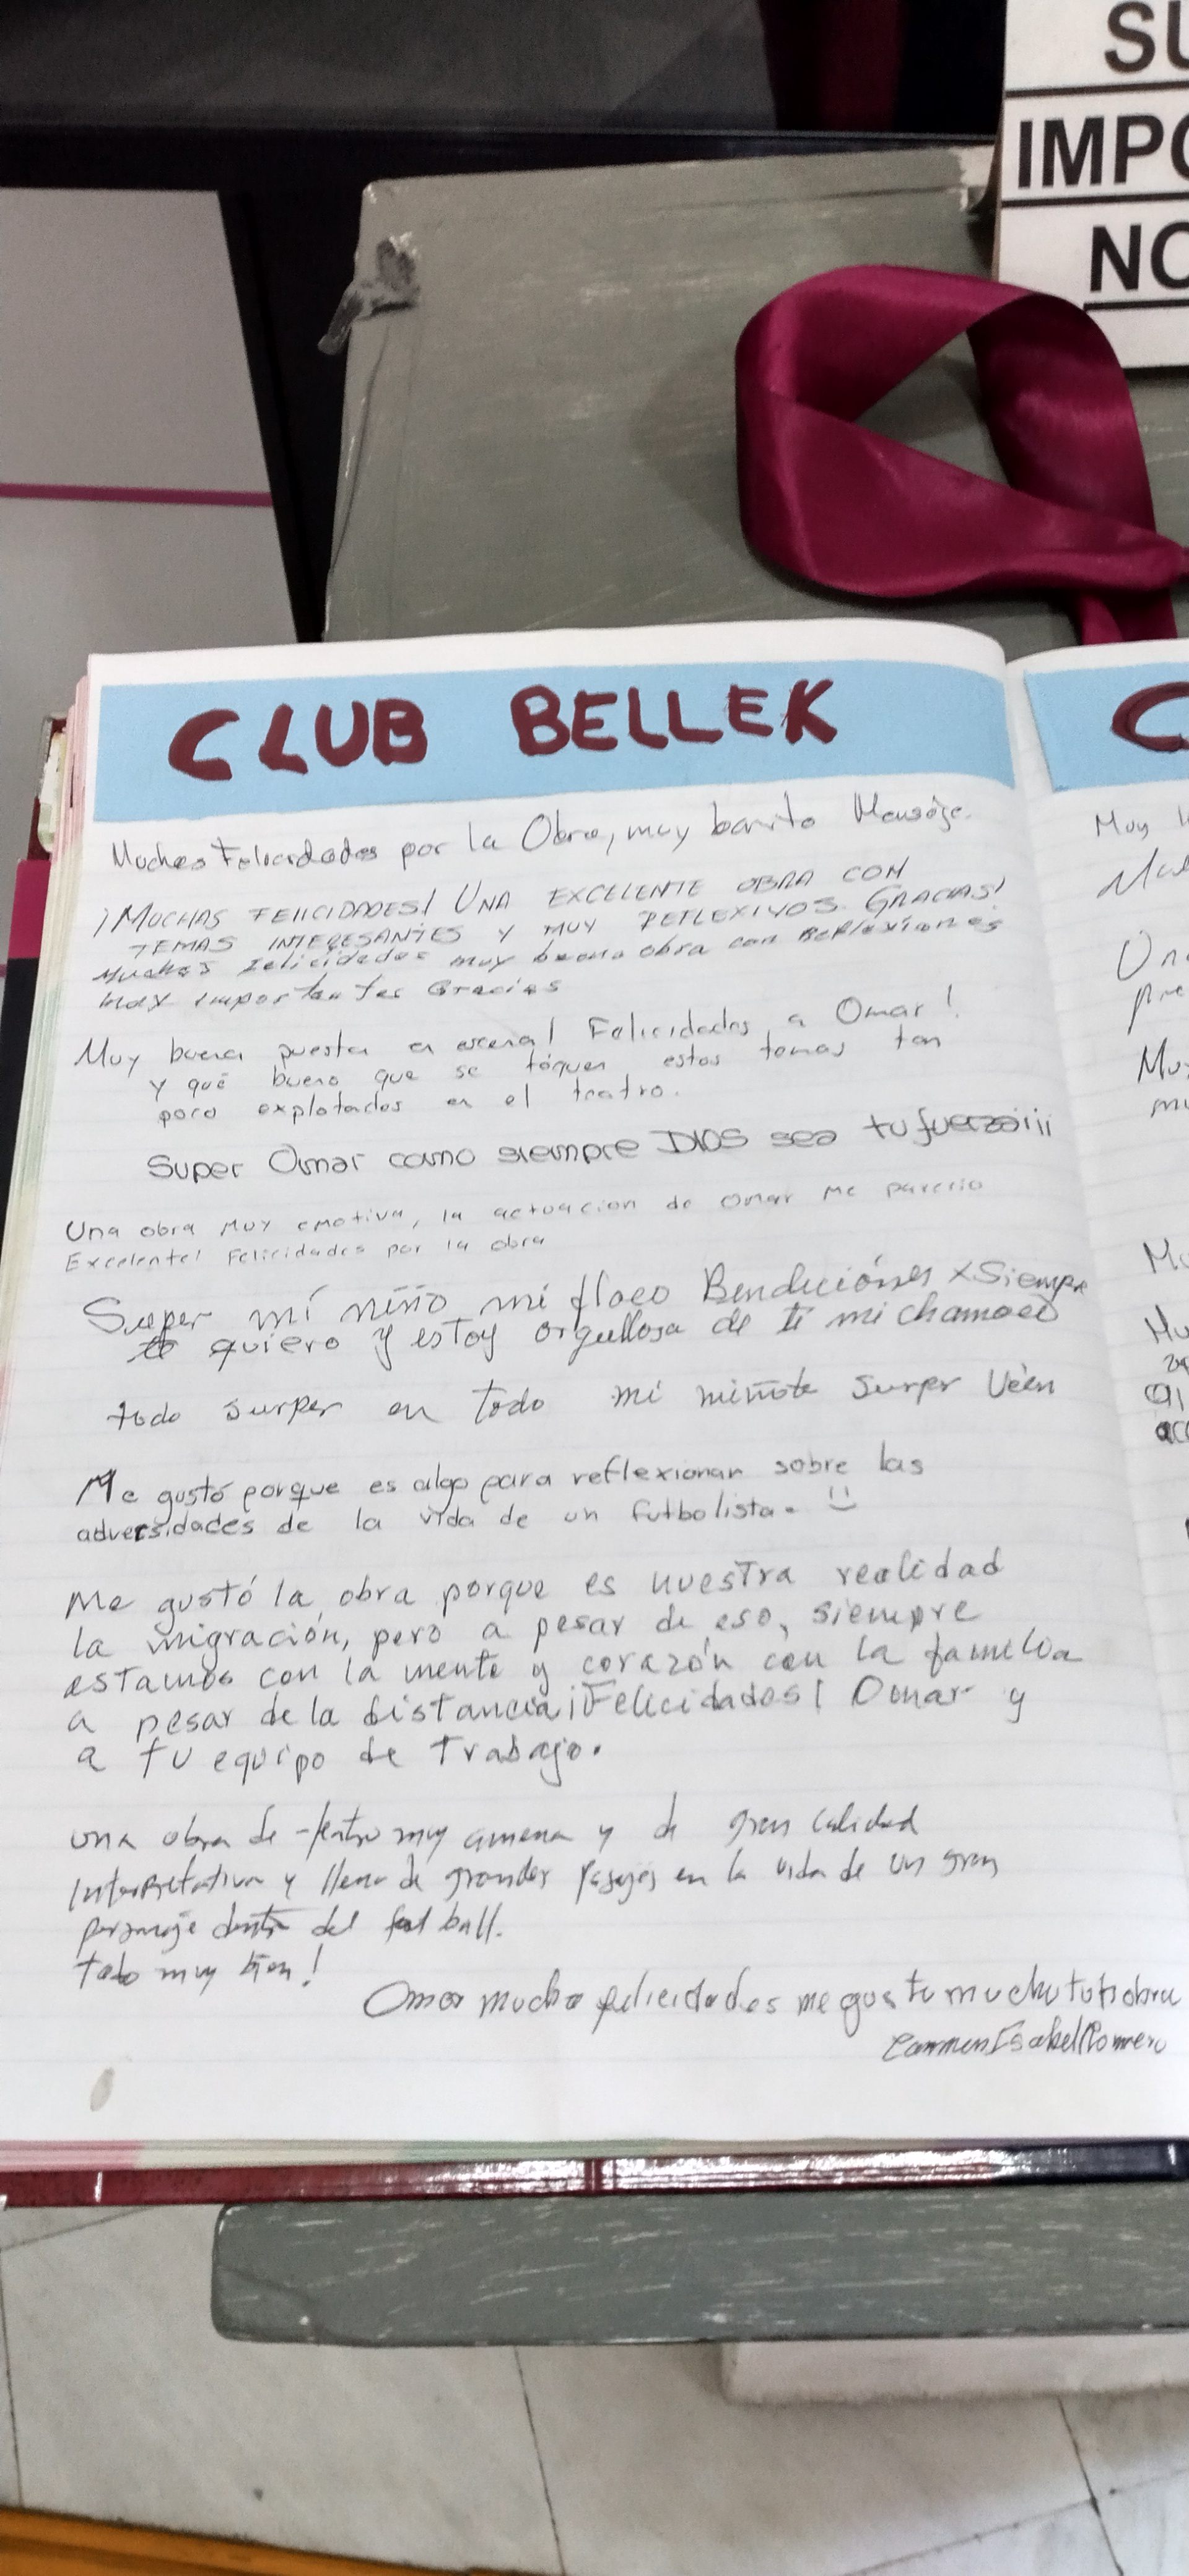 SU
IMPO
NO
CLUB BELLEK
C
Muchas Felicidades por la Obra, muy bonito Mensaje.
¡MUCHAS FELICIDADES! UNA EXCELENTE OBRA CON
TEMAS INTERESANTES Y MUY REFLEXIVOS. GRACIAS!
Muchas Felicidades muy buena obra con Reflexiones
muy importantes Gracias
Muy buena puesta en escena! Felicidades a Omar!
y qué bueno que se toquen estos temas tan
poco explotados en el teatro.
Super Omar como siempre DIOS sea tu fuerza¡¡¡
Una obra muy emotiva, la actuacion de Omar me parecio
Excelente! Felicidades por la obra
Super mi niño mi flaco Bendiciónes x Siempre
te quiero y estoy orgullosa de ti mi chamaco
todo surper en todo mi niñote surper
Me gustó porque es algo para reflexionar sobre las
adversidades de la vida de un futbolista.
Me gustó la obra porque es nuestra realidad
la migración, pero a pesar de eso, siempre
estamos con la mente y corazón con la familia
a pesar de la distancia ¡Felicidades! Omar y
a tu equipo de Trabajo.
una obra de teatro muy amena y de gran calidad
Interpretativa y llena de grandes pasajes en la vida de un gran
personaje dentro del foot ball.
todo muy bien!
Omar mucha felicidades me gusto mucho tu obra
Carmen Isabel Romero
Muy
Una
pre
Muy
mu